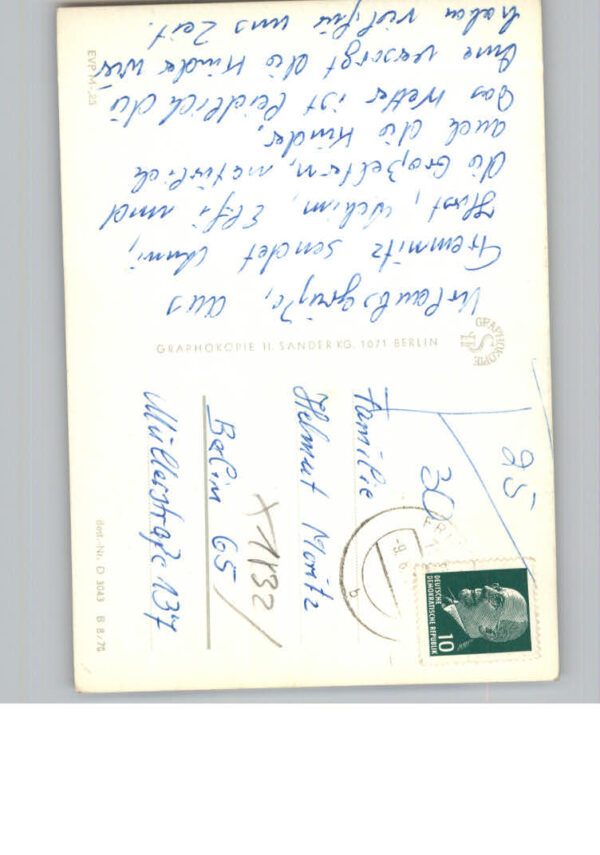 Urlaubsgrüße, aus
sendet Anni,
Horst, Achim, Elfi und
die Großeltern, natürlich
auch die Kinder.
Das Wetter ist leidlich die
versorgt die Kinder wir
haben viel für uns Zeit.
EVP M -,25
GRAPHOKOPIE H. SANDER KG. 1071 BERLIN
GRAPHOKOPIE
HS
95
30
Familie
Helmut Moritz
X 1132
Berlin 65
Müllerstraße 137
Best.-Nr. D 3043 B 8/75
DEUTSCHE
DEMOKRATISCHE REPUBLIK
10
b